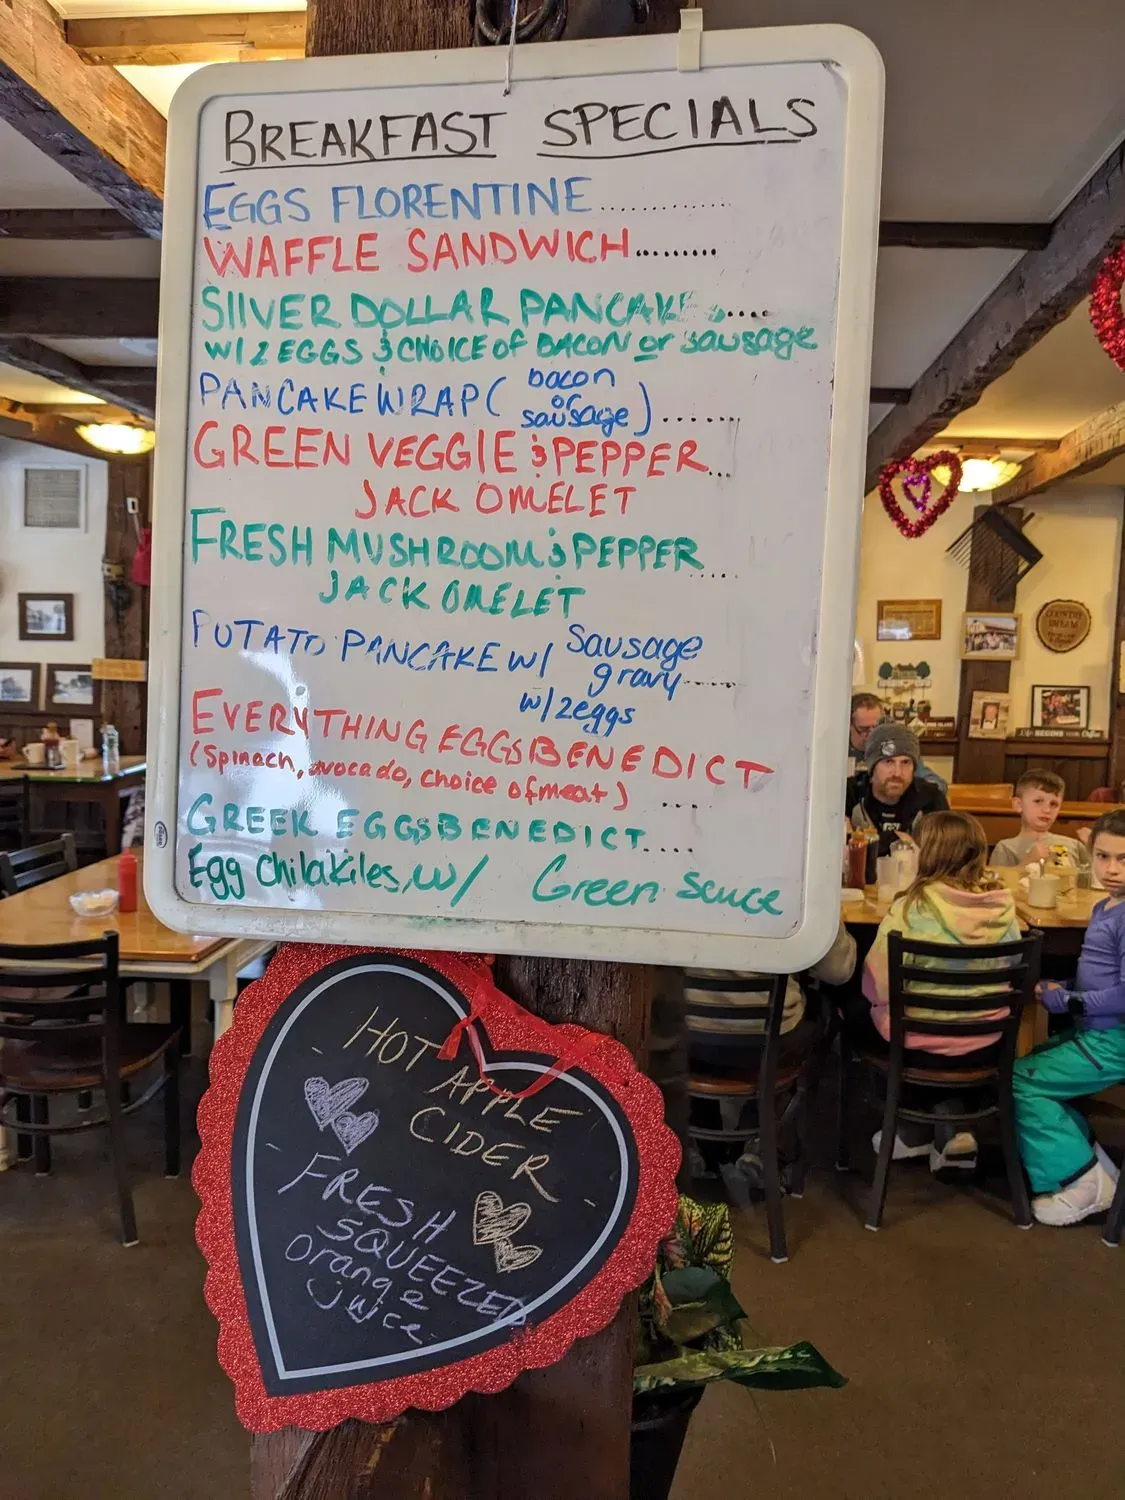 BREAKFAST SPECIALS
EGGS FLORENTINE..............
WAFFLE SANDWICH.........
SIIVER DOLLAR PANCAKES....
W/ 2 EGGS & CHOICE OF BACON or sausage
PANCAKE WRAP ( bacon or sausage ) .......
GREEN VEGGIE & PEPPER...
JACK OMELET
FRESH MUSHROOM & PEPPER.....
JACK OMELET
POTATO PANCAKE W/ Sausage gravy......
w/ 2 eggs
EVERYTHING EGGS BENEDICT
(Spinach, avocado, choice of meat) ....
GREEK EGGS BENEDICT....
Egg Chilakiles, w/ Green sauce
- HOT APPLE
CIDER -
- FRESH
SQUEEZED
orange
juice -
COUNTRY
DREAM